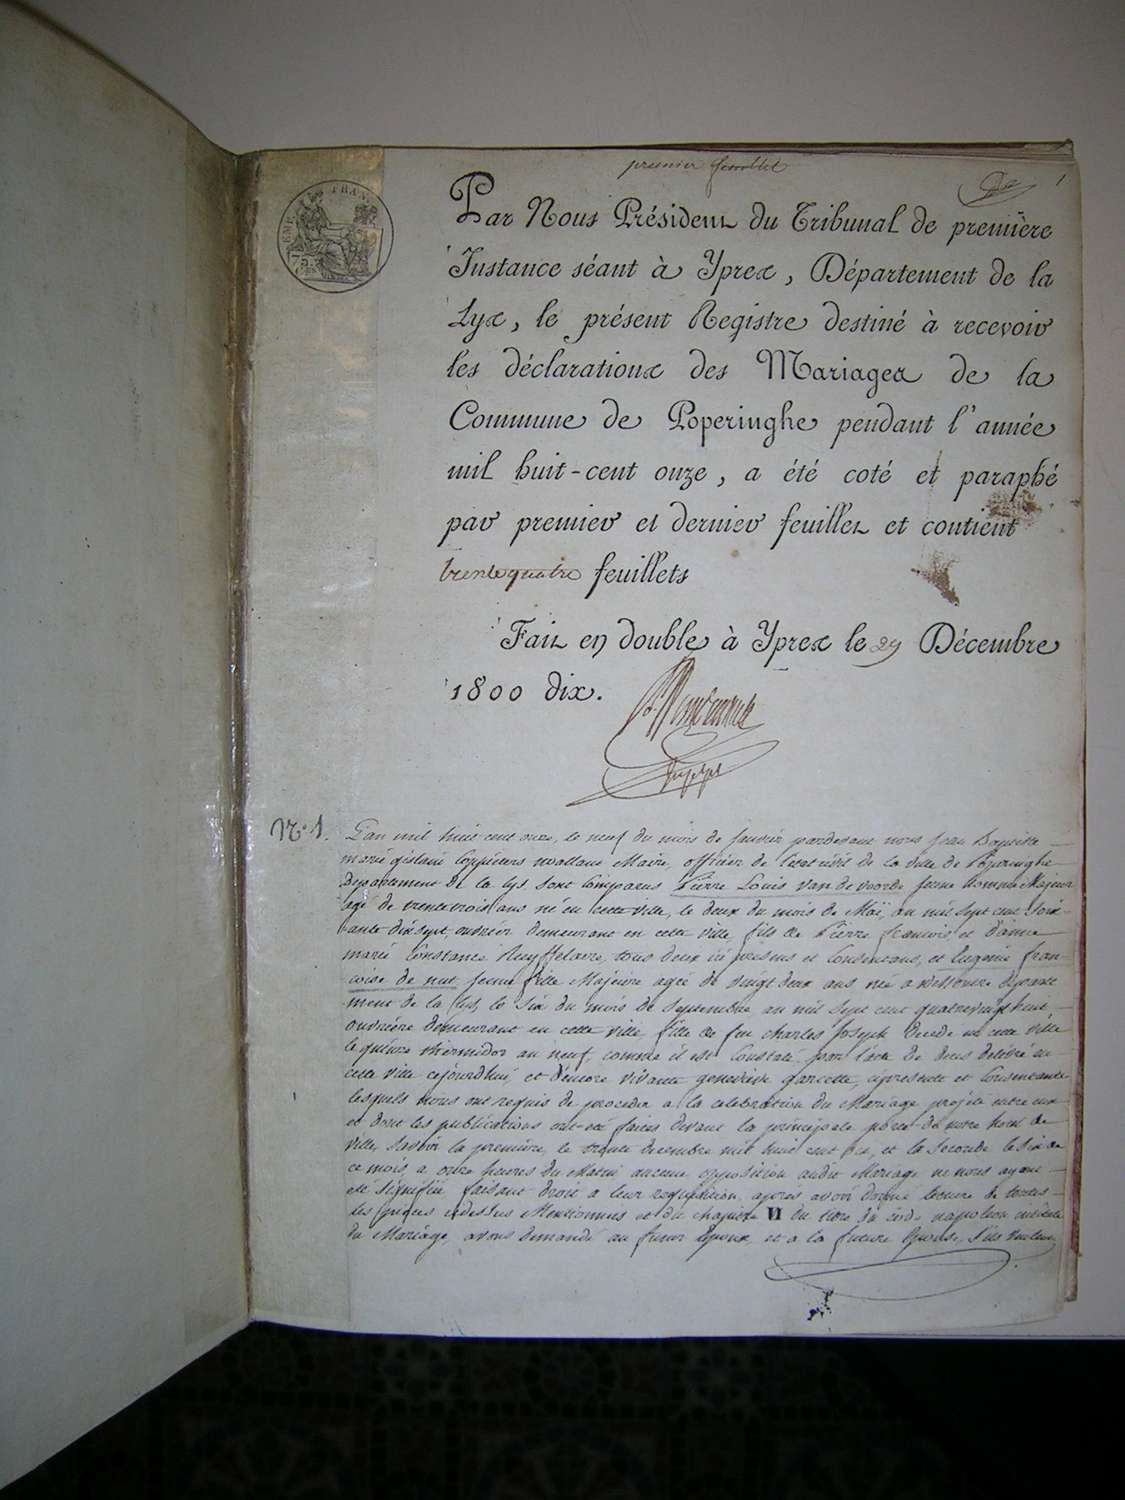 premier feuillet
1
Par Nous Président du Tribunal de première
Instance séant à Ypres, Département de la
Lys, le présent Registre destiné à recevoir
les déclarations des Mariages de la
Commune de Poperinghe pendant l'année
mil huit-cent onze, a été coté et paraphé
par premier et dernier feuillet et contient
trente quatre feuillets
Fait en double à Ypres le 29 Décembre
1800 dix.
N.° 1.
L'an mil huit cent onze, le neuf du mois de Janvier pardevant nous Jean Baptiste
marie Maire, officier de l'état civil de la ville de Poperinghe
departement de la Lys, sont comparus Pierre Louis van de voorde jeune homme Majeur
agé de trente trois ans né en cette ville, le deux du mois de Maï, an mil sept cent soix-
ante dix sept, ouvrier demeurant en cette ville, fils de Pierre francois et d'anne
marie Constance tous deux ici présens et Consentans, et Eugenie fran-
coise de nut, jeune fille Majeure agée de vingt deux ans née a departe
ment de la Lys, le six du mois de Septembre an mil sept cent quatrevingt huit
ouvrière demeurant en cette ville, fille de feu charles Joseph décédé en cette ville
le quinze thermidor an neuf, comme il est Constaté par l'acte de deces délivré en
cette ville cejourd'hui, et d'encore vivante geneviève garcette, ci presente et Consentante
lesquels nous ont requis de proceder a la celebration du Mariage projeté entre eux
et dont les publications ont été faites devant la principale porte de notre hotel de
ville, savoir la première, le trente decembre mil huit cent dix, et la seconde le six de
ce mois a onze heures du Matin aucune opposition audit Mariage ne nous ayant
été signifiée faisant droit a leur requisition, après avoir donné lecture de toutes
les pièces cidessus Mentionnées et du chapitre VI du titre du code napoleon intitulé
du Mariage, avons demandé au futur Epoux, et a la future Epouse, s'ils veulent